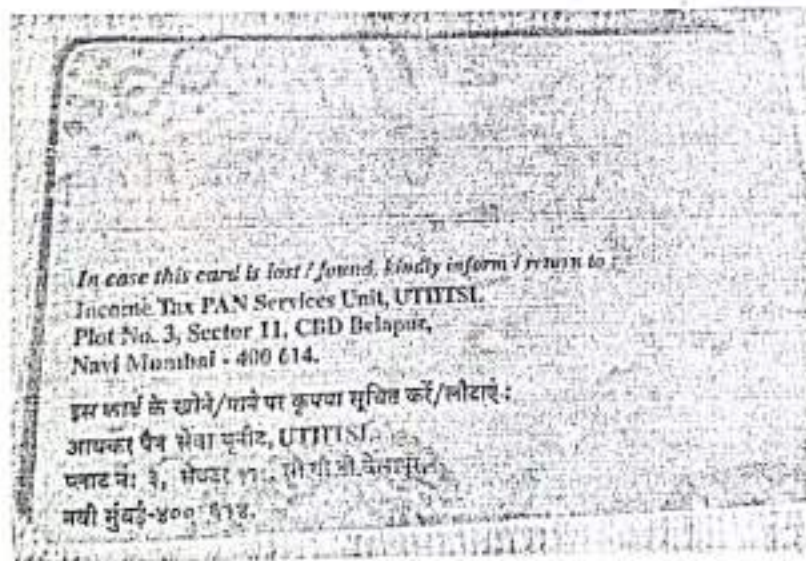 In case this card is lost / found, kindly inform / return to :
Income Tax PAN Services Unit, UTIITSL
Plot No. 3, Sector 11, CBD Belapur,
Navi Mumbai - 400 614.
इस कार्ड के खोने/पाने पर कृपया सूचित करें/लौटाएं :
आयकर पैन सेवा यूनीट, UTIITSL
प्लाट नं: ३, सेक्टर ११, सी.बी.डी.बेलापूर,
नवी मुंबई-४०० ६१४.